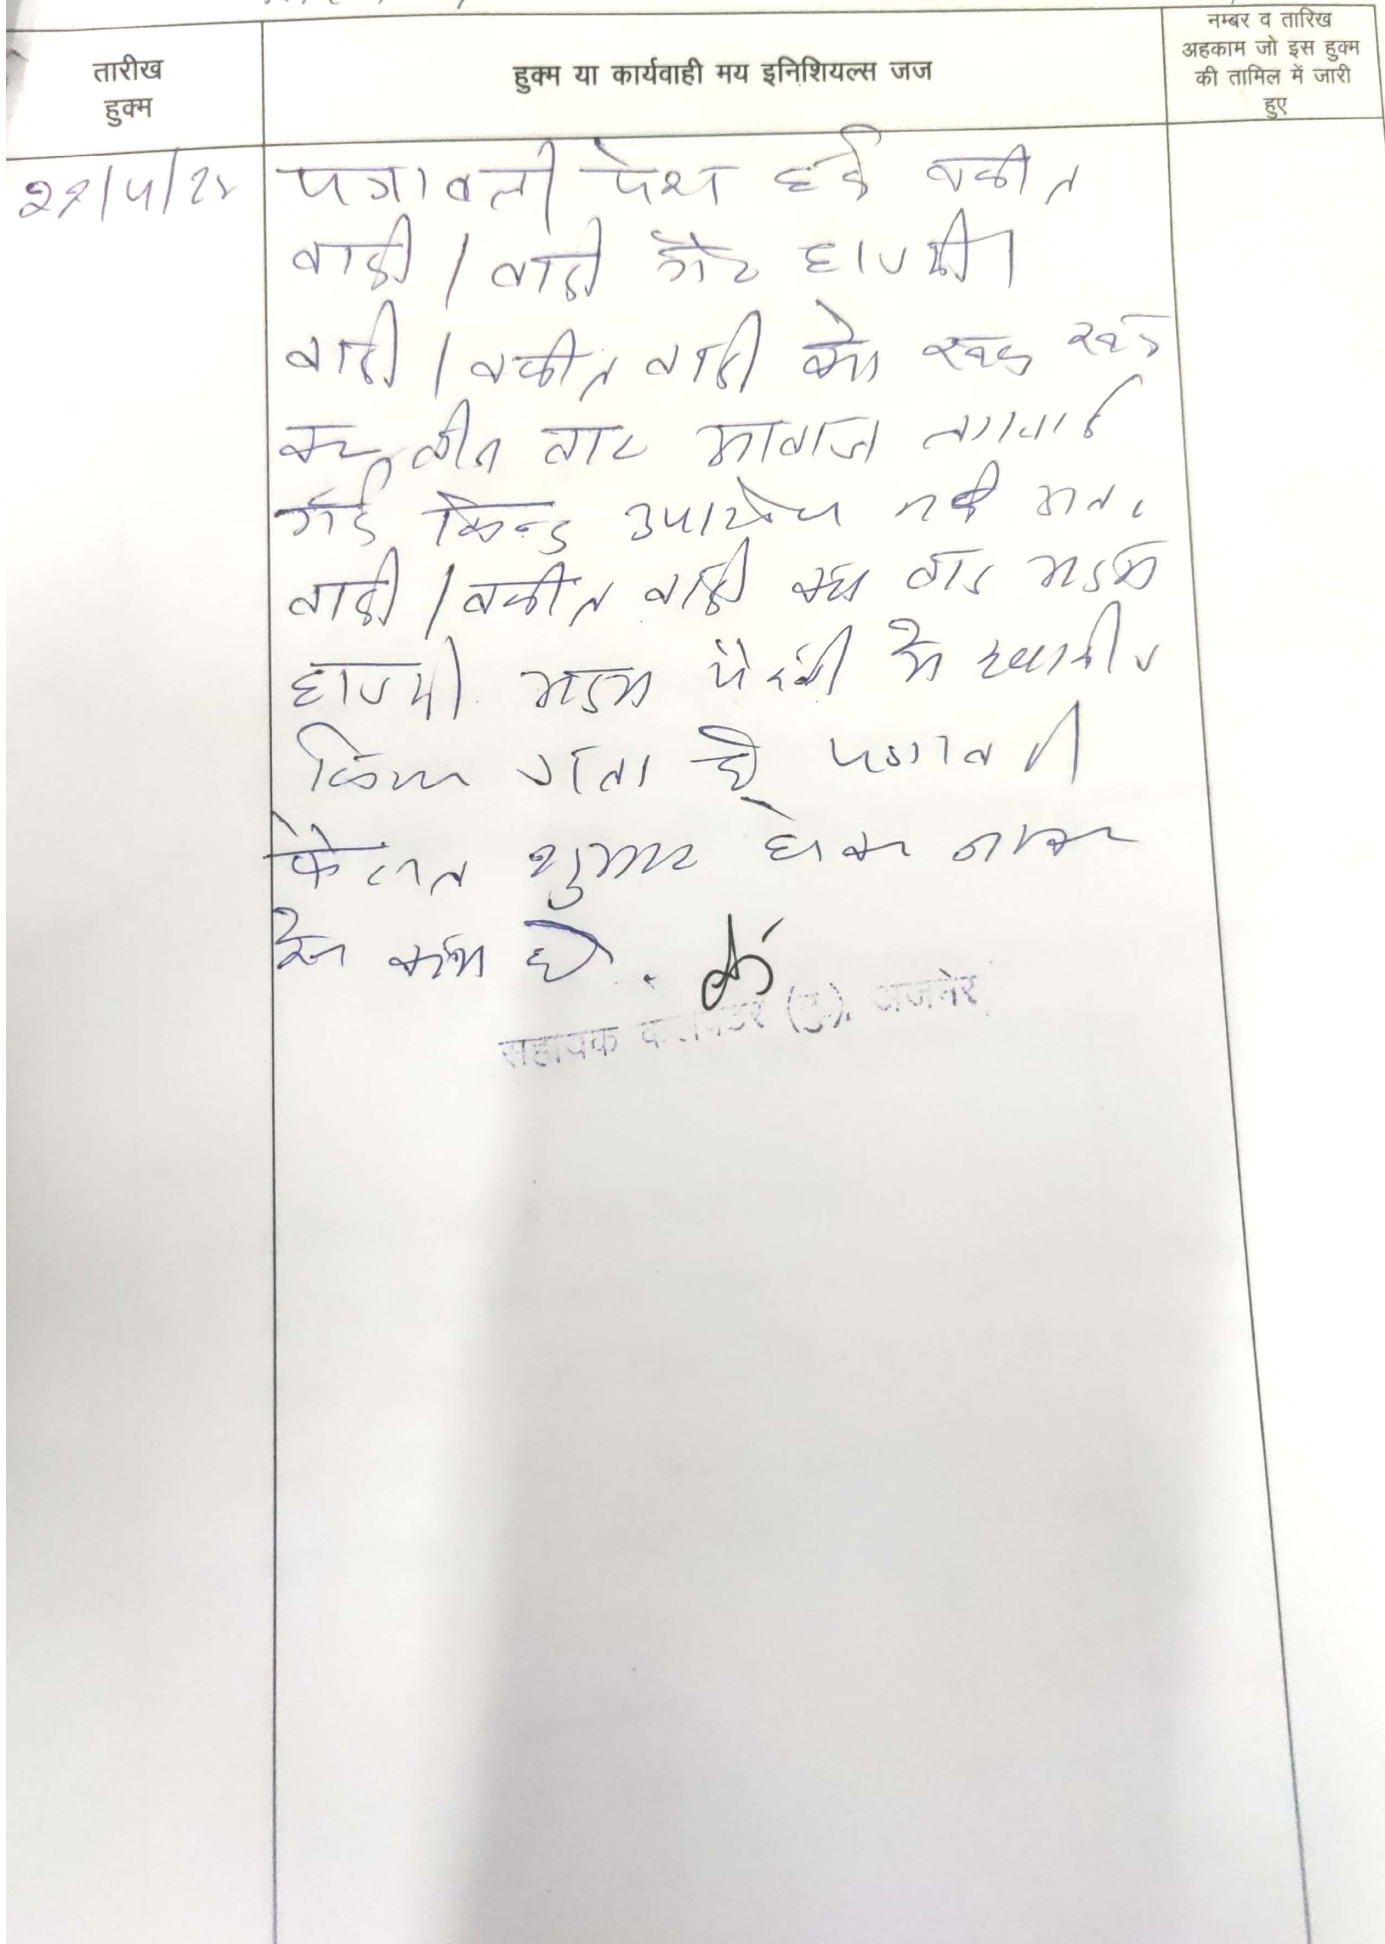 तारीख
हुक्म
हुक्म या कार्यवाही मय इनिशियल्स जज
नम्बर व तारिख
अहकाम जो इस हुक्म
की तामिल में जारी
हुए
पत्रावली पेश हुई वकील
वादी / वादी गैर हाजरी।
वादी / वकील वादी को रूक रूक
कर तीन बार आवाज लगवाई
गई किन्तु उपस्थित नही आए।
वादी / वकील वादी का वाद अदम
हाजरी अदम पैरवी में खारीज
किया जाता है पत्रावली
फैसल शुमार होकर नम्बर
से कम हो.
सहायक कलक्टर (मु.), अजमेर